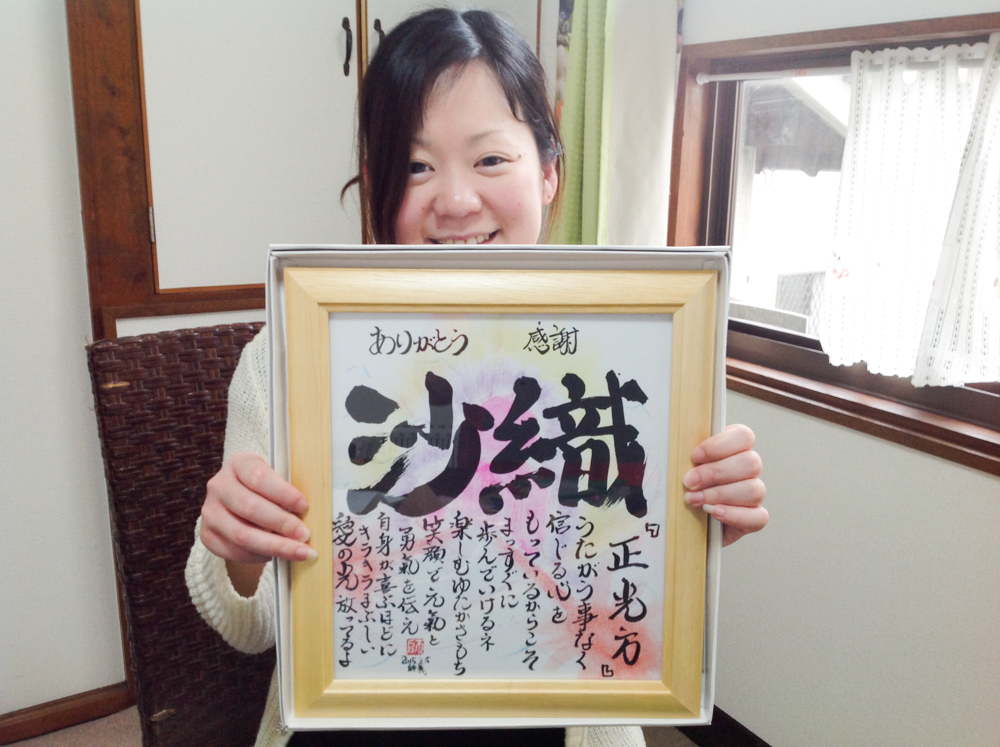 ありがとう
感謝
沙織
『正光方』
うたがう事なく
信じる心を
もっているからこそ
まっすぐに
歩んでいけるネ
楽しむゆたかさもち
笑顔で元氣と
勇氣を伝え
自身が喜ぶほどに
キラキラまぶしい
愛の光放ってるよ